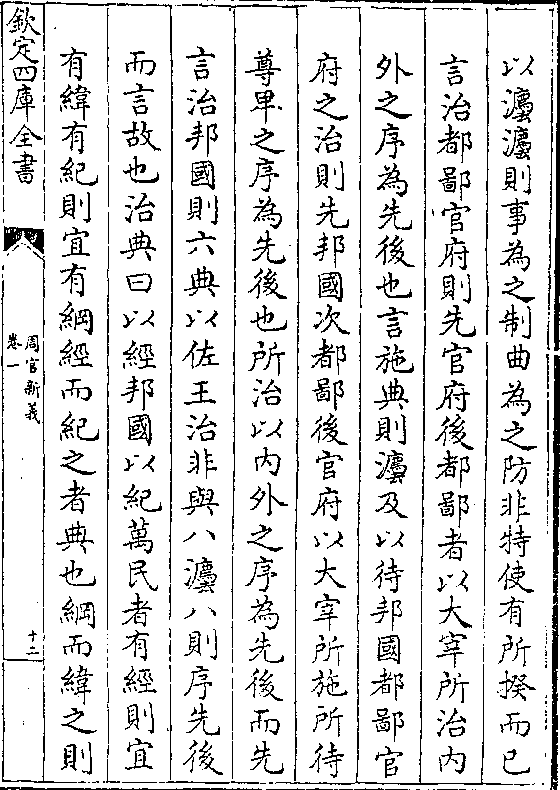 以灋灋則事為之制曲為之防非特使有所揆而已
言治都鄙官府則先官府後都鄙者以大宰所治内
外之序為先後也言施典則灋及以待邦國都鄙官
府之治則先邦國次都鄙後官府以大宰所施所待
尊卑之序為先後也所治以内外之序為先後而先
言治邦國則六典以佐王治非與八灋八則序先後
而言故也治典曰以經邦國以紀萬民者有經則宜
有緯有紀則宜有綱經而紀之者典也綱而緯之則
欽定四庫全書
周官新義
卷一
十二